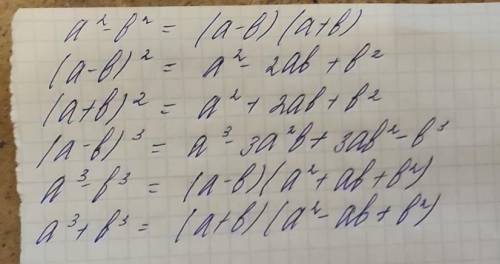 a² - b² = (a-b) (a+b)
(a-b)² = a² - 2ab + b²
(a+b)² = a² + 2ab + b²
(a-b)³ = a³ - 3a²b + 3ab² - b³
a³ - b³ = (a-b) (a² + ab + b²)
a³ + b³ = (a+b) (a² - ab + b²)